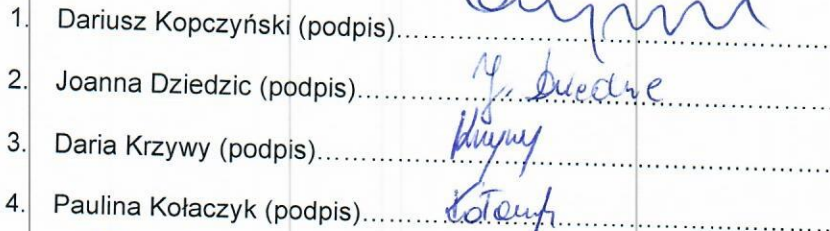 1. Dariusz Kopczyński (podpis)........................
2. Joanna Dziedzic (podpis)........... J. Dziedzic
3. Daria Krzywy (podpis)................ Krzywy
4. Paulina Kołaczyk (podpis)...........